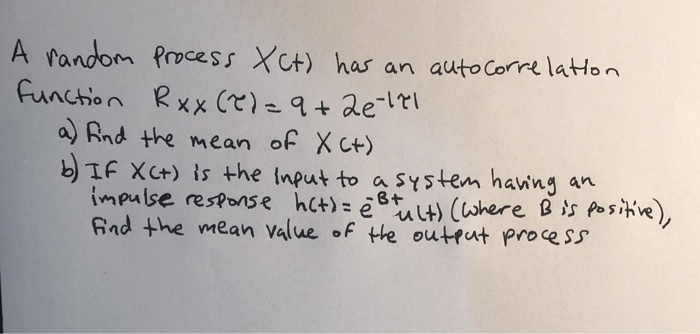 A random process X(t) has an autocorrelation
function Rxx(τ) = 9 + 2e^-|τ|
a) find the mean of X(t)
b) If X(t) is the input to a system having an
impulse response h(t) = e^-βt u(t) (where β is positive),
find the mean value of the output process